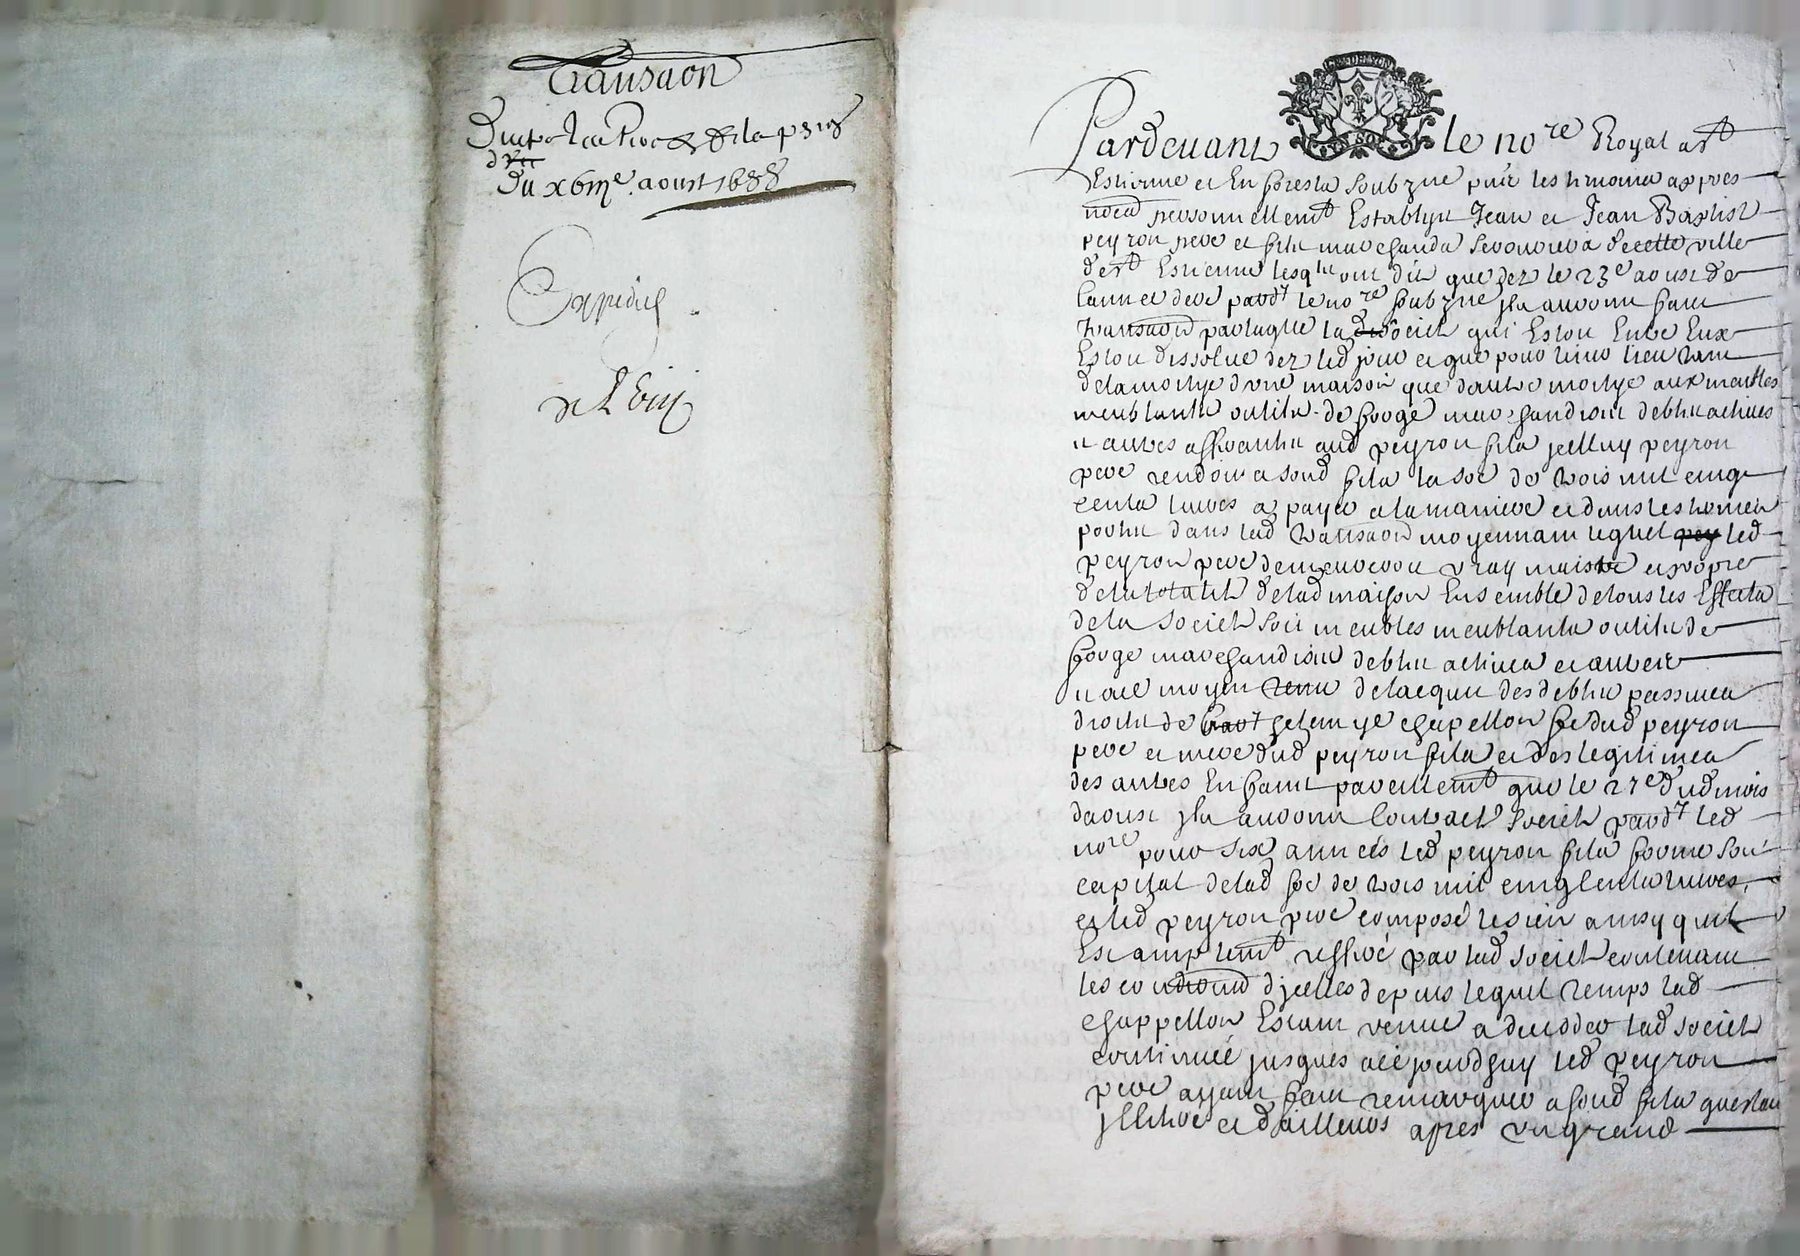 Transaon
du x6me aoust 1688
Expediés
GNAL DE LYON
Pardevant le nore Royal a st
Estienne en foresta soubzne puis les tesmoins apres
nomes personnellemt Establys Jean et Jean Baptiste
peyron pere et fils marchands serruriers de cette ville
de st Estienne lesqls ont dit que dez le 23e aoust de
lannee dere pardt le nore soubzne ils auroint faict
transaon partagée la societé qui Estoit Entre Eux
Estoit dissolue dez led jour et que pour tenir lieu tant
de la moitye dune maison que dautre moitye aux meubles
meublants outils de forge marchandises debtes actives
et autres afferants aud peyron fils jcelluy peyron
pere rendoit a sond fils la soe de trois mil cinq
cents livres a payer a la maniere et dans les termes
portés dans lad transaon moyennant lequel led
peyron pere demeureroit vray maistre et propre
de la totalité de lad maison Ensemble de tous les Effects
de la societé soit meubles meublants outils de
forge marchandises debtes actives et autres
et au moyen de lacquit des debtes passives
droits de chapellon fe dud peyron
pere et mere dud peyron fils et des legitimes
des autres Enfants pareillemt que le 27e dud mois
daoust jls auroint Contracté societé pardt led
nore pour six années led peyron fils forme son
capital de lad soe de trois mil cinq Cents livres,
et led peyron pere composé le sien ainsy quil
Est amplemt reffere par lad societé contenant
les condions djcelles depuis lequel temps lad
chappellon Estant venue a deceder lad societé
continuée jusques a ce jourdhuy led peyron
pere ayant faict remarquer a sond fils questant
et dailleurs apres un grand